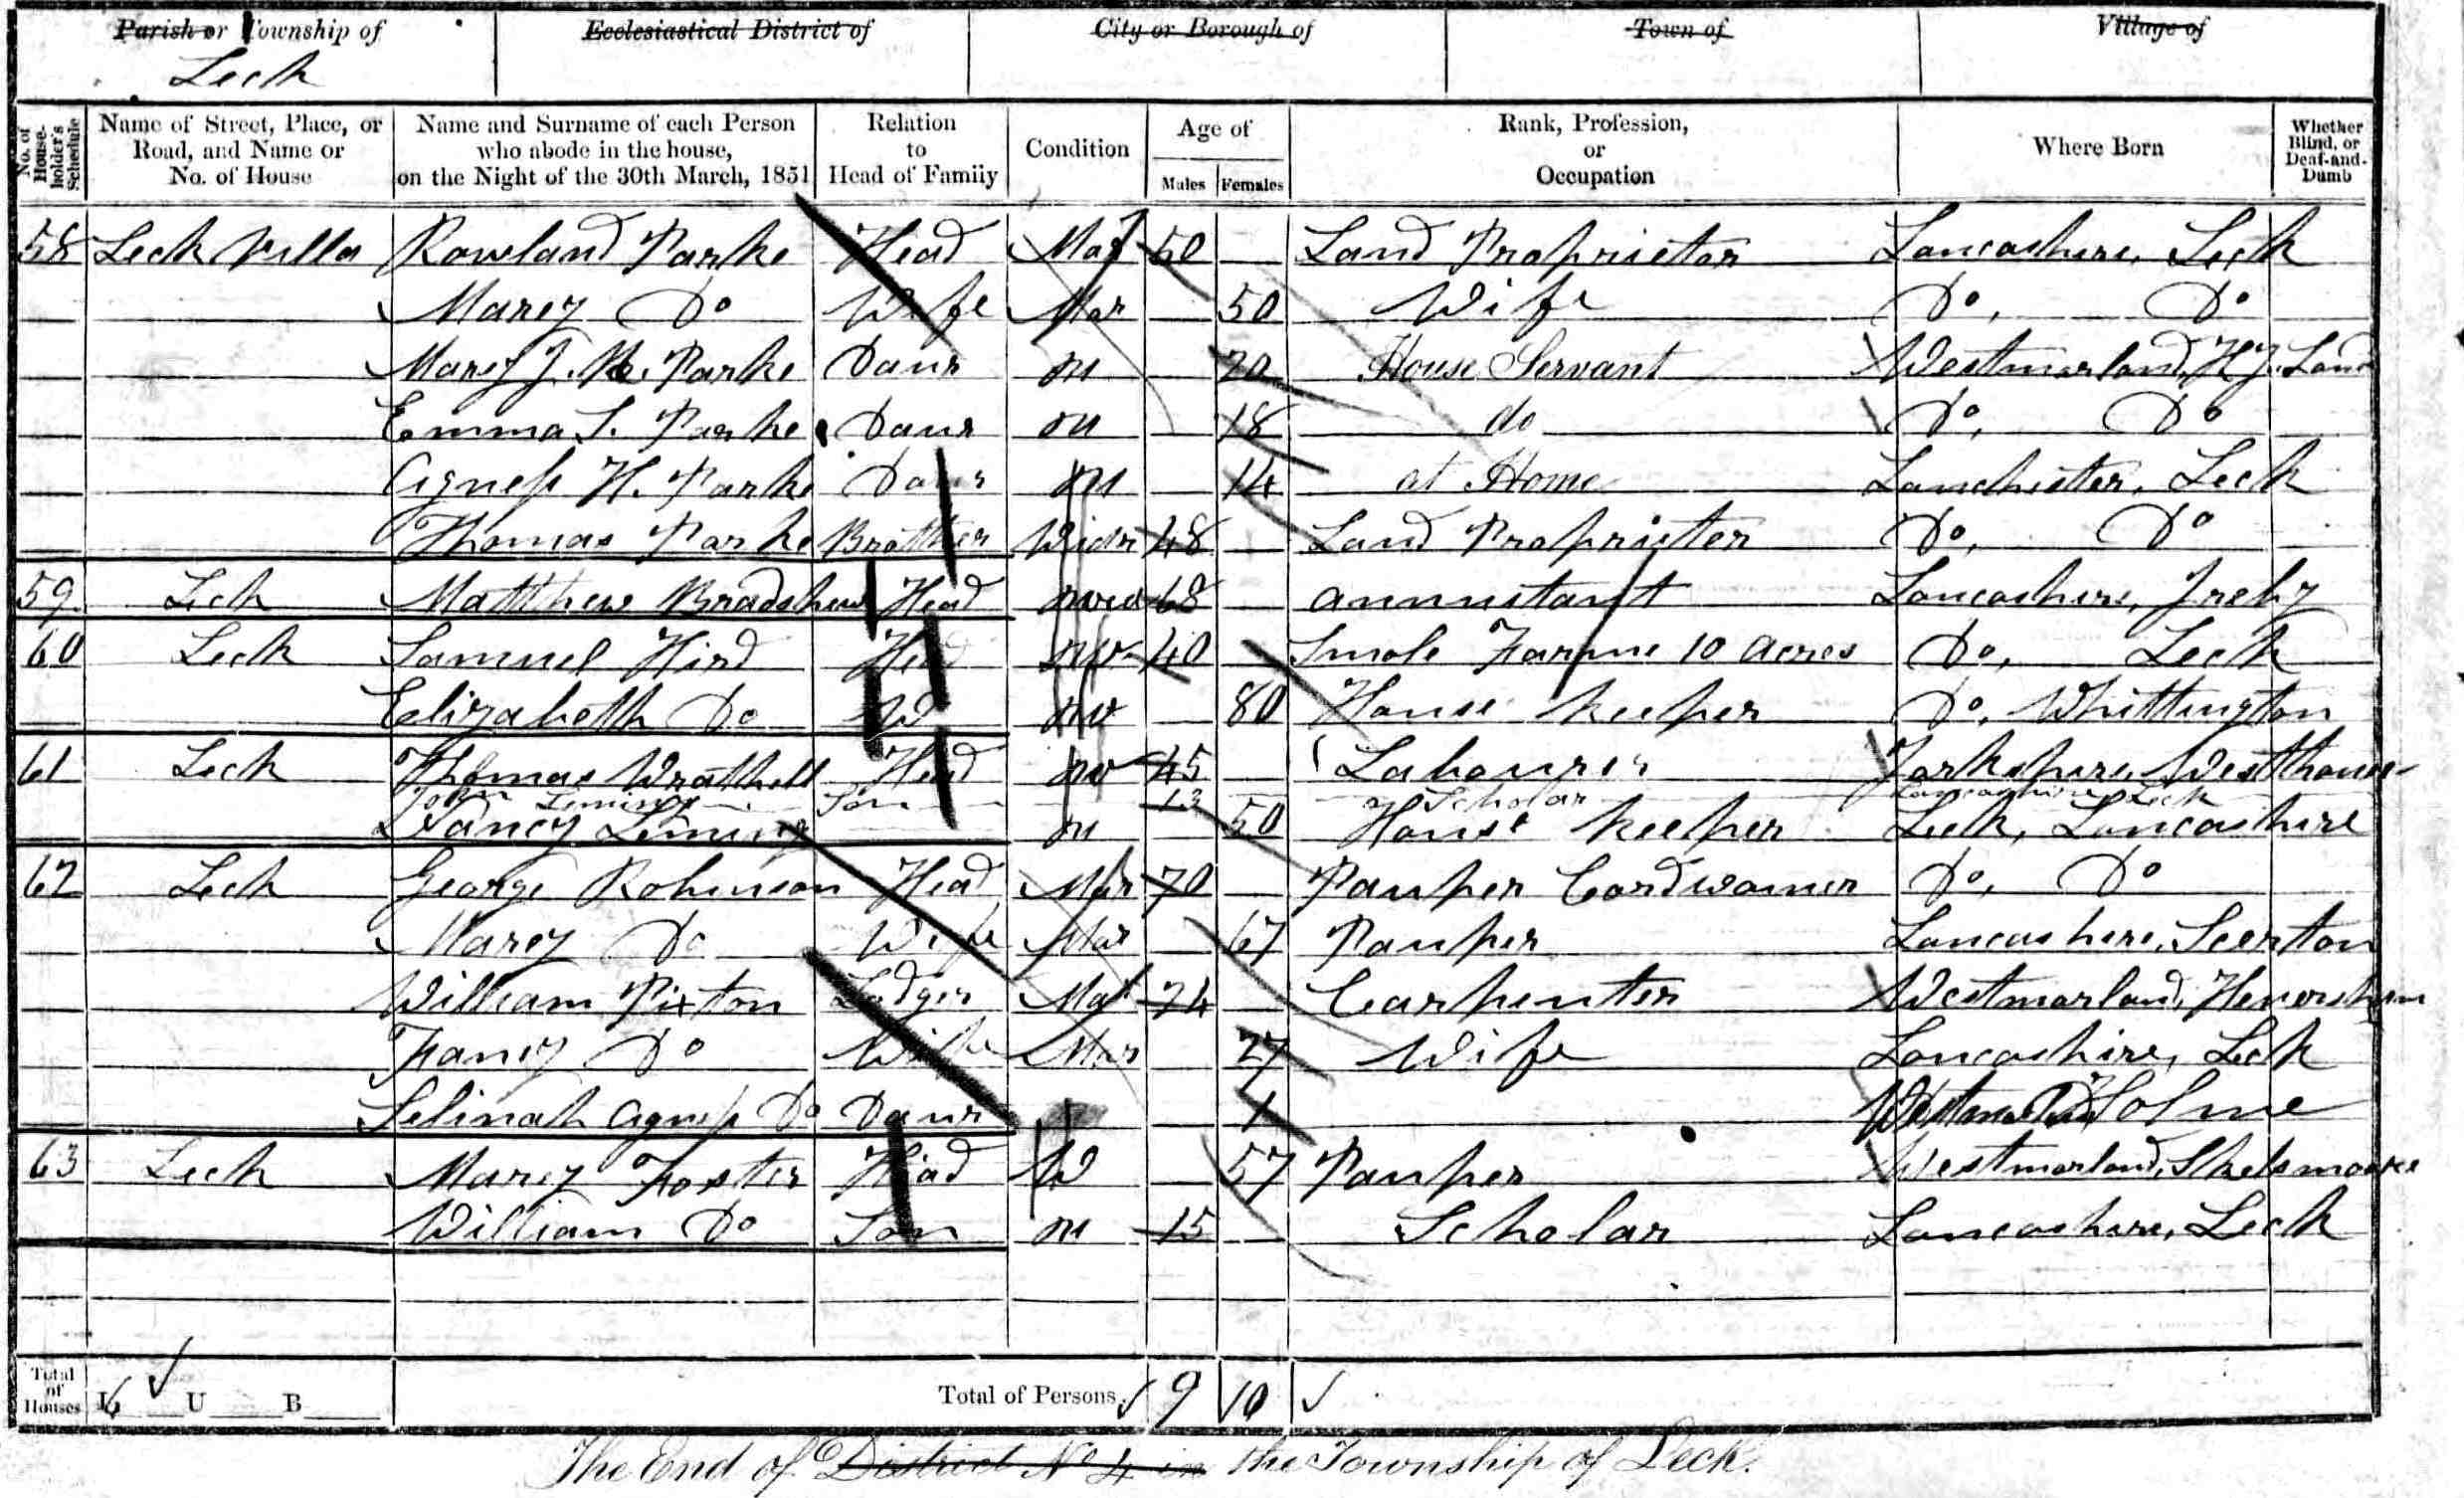 Parish or Township of Ecclesiastical District of City or Borough of Town of Village of
Leck
No. of House-holder's Schedule Name of Street, Place, or Road, and Name or No. of House Name and Surname of each Person who abode in the house, on the Night of the 30th March, 1851 Relation to Head of Family Condition Age of Males Females Rank, Profession, or Occupation Where Born Whether Blind, or Deaf-and-Dumb
58 Leck Villa Rowland Parke Head Mar 50 Land Proprietor Lancashire, Leck
Marey Do Wife Mar 50 Wife Do, Do
Marey J. Parke Daur 20 House Servant Westmorland,
Emma S. Parke Daur 18 do Do, Do
Agness H. Parke Daur 14 at Home Lanchister, Leck
Thomas Parke Brother Widr 48 Land Proprieter Do, Do
59 Leck Matthew Bradshaw Head 68 annuitant Lancashire, Ireby
60 Leck Samuel Hird Head 40 10 acres Do, Leck
Elizabeth Do W 80 House keeper Do, Whittington
61 Leck Thomas Wrathell Head 45 Labourer Yorkshire, Westhouse
John Leming Son 13 Scholar Lancashire Leck
Nancy Leming 50 House keeper Leck, Lancashire
62 Leck George Robinson Head Mar 70 Pauper Cordwainer Do, Do
Marey Do Wife Mar 67 Pauper Lancashire,
William Pixton Lodger Mar 24 Carpenter Westmorland, Heversham
Fancy Do Wife Mar 27 Wife Lancashire, Leck
Selinah Agness Do Daur 1 Westmorland Holme
63 Leck Marey Foster Head W 57 Pauper Westmorland,
William Do Son 15 Scholar Lancashire, Leck
Total of Houses I 6 U B Total of Persons 9 10
The End of District No 4 in the Township of Leck.